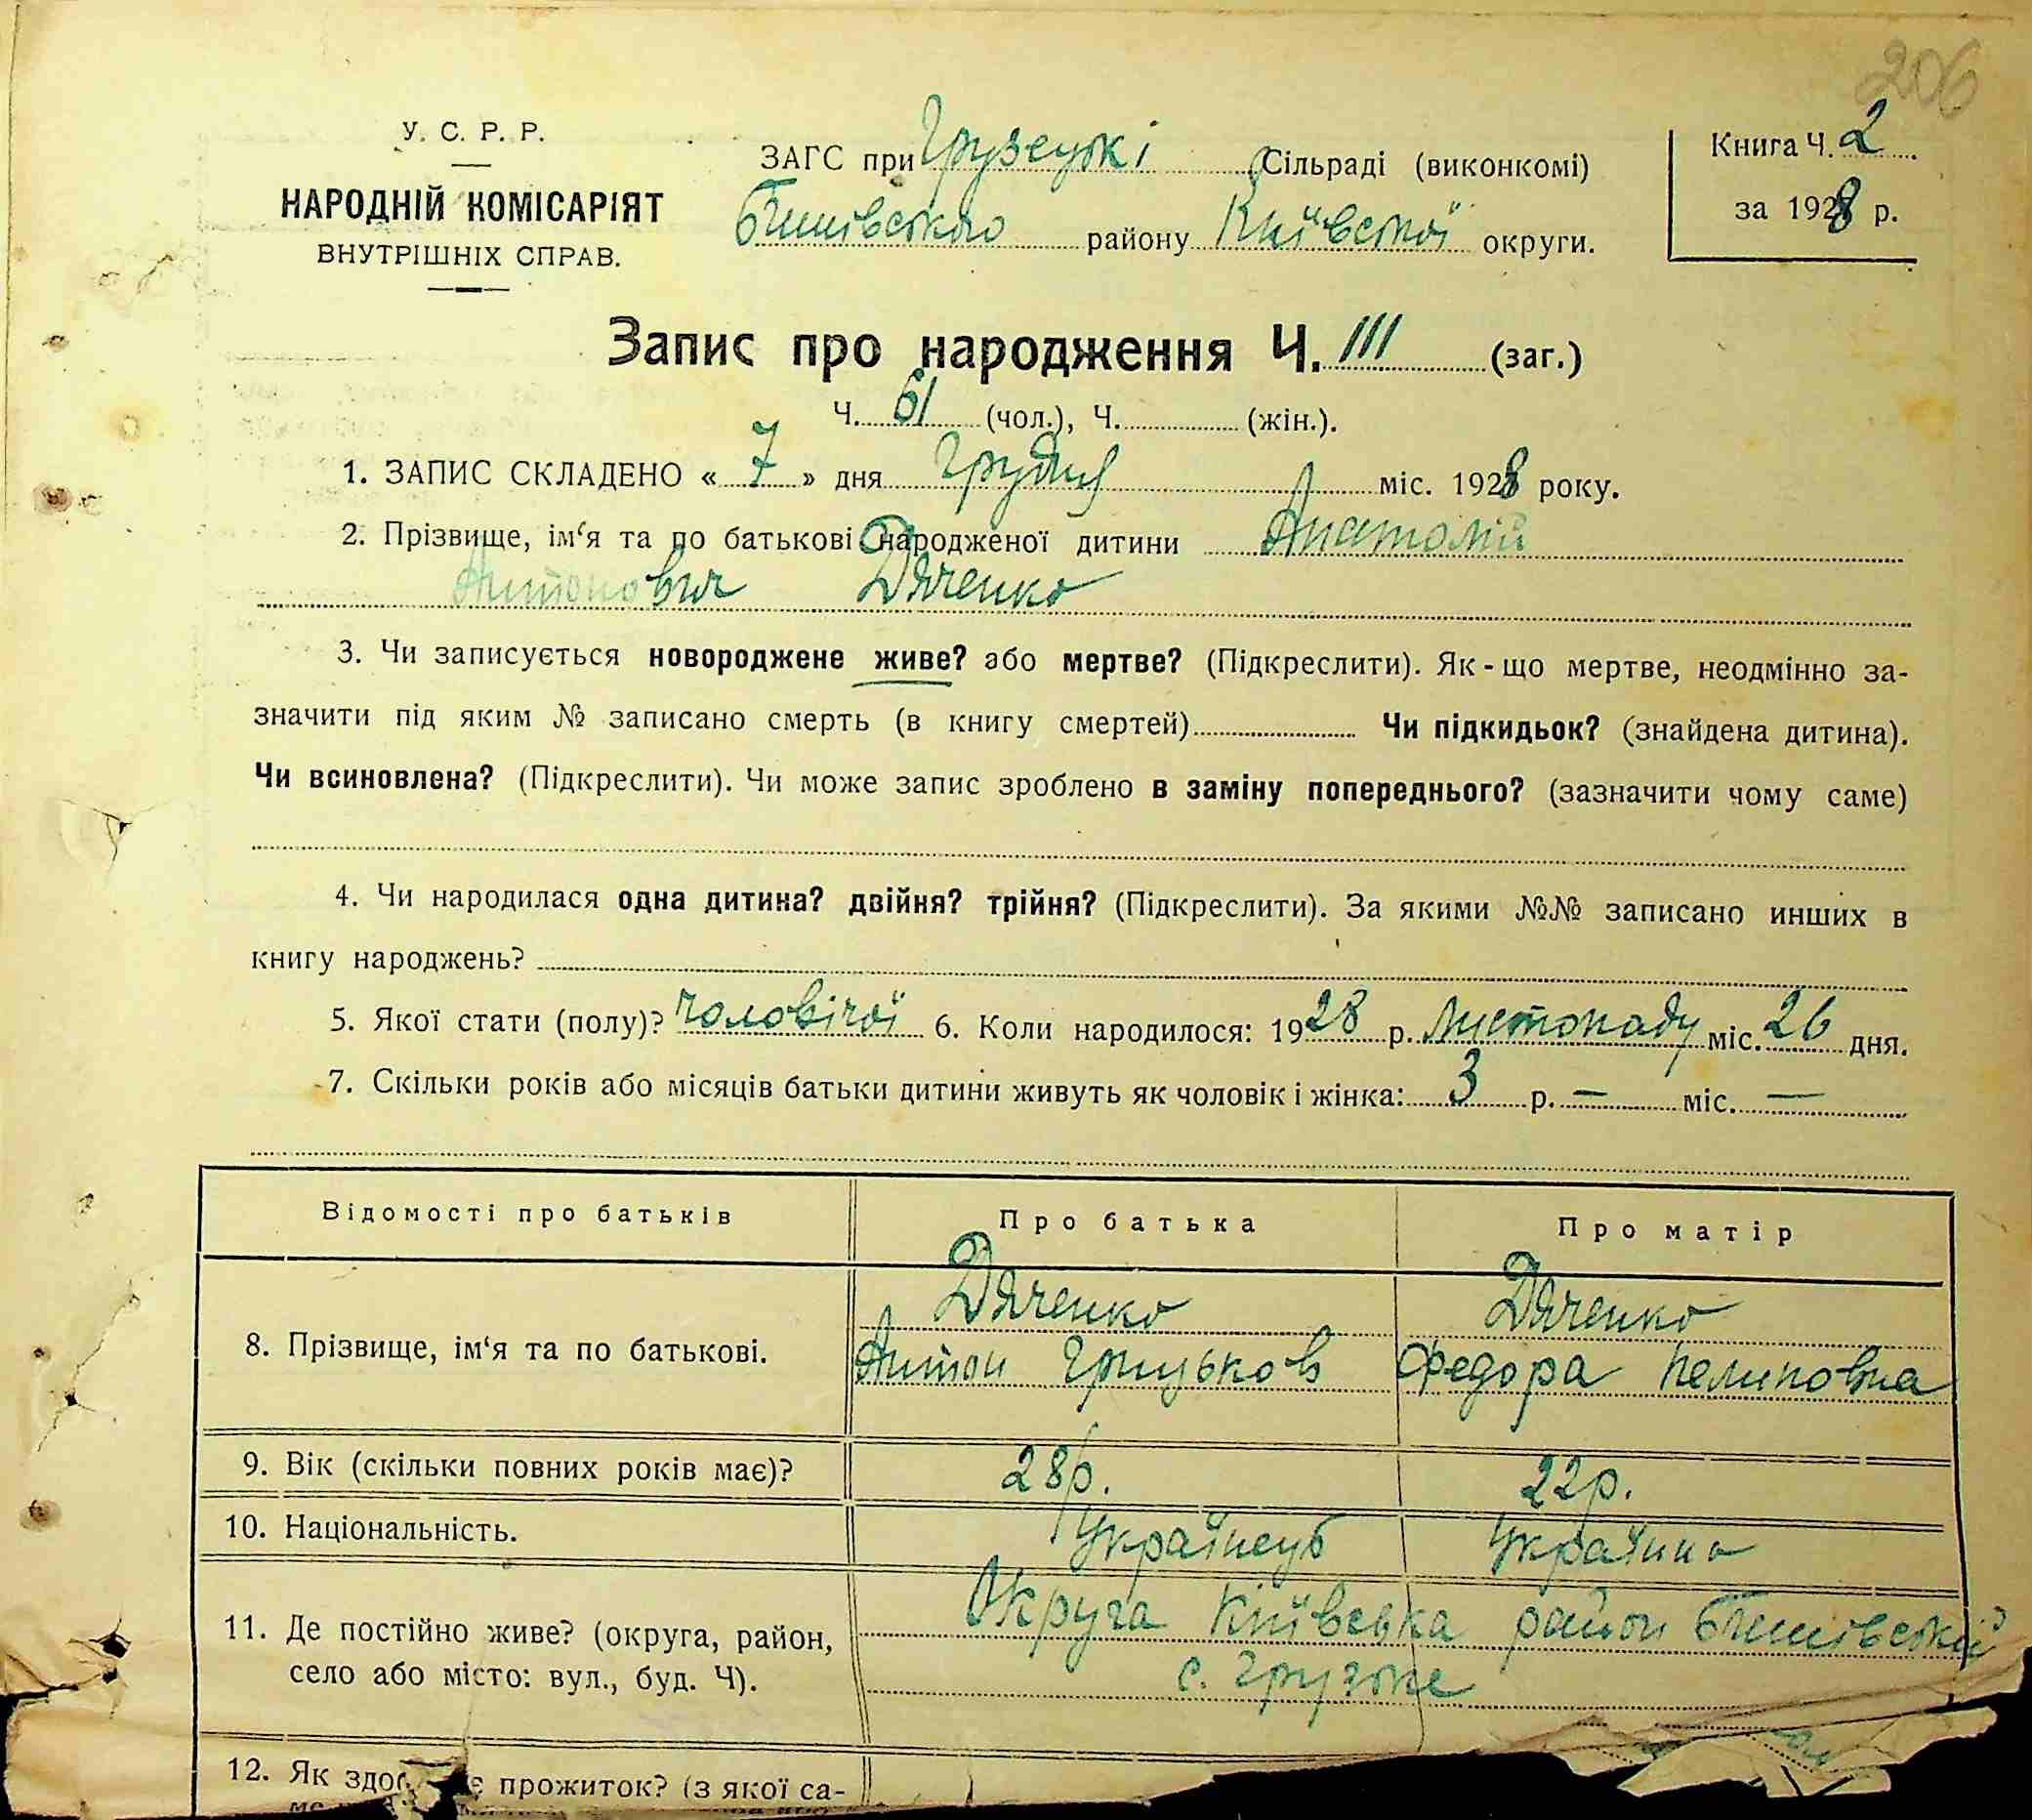 206
У. С. Р. Р.
НАРОДНІЙ КОМІСАРІЯТ
ВНУТРІШНІХ СПРАВ.
ЗАГС при Грузеуькі Сільраді (виконкомі)
Бишівського району Київської округи.
Книга Ч. 2
за 1928 р.
Запис про народження Ч. 111 (заг.)
Ч. 61 (чол.), Ч. (жін.).
1. ЗАПИС СКЛАДЕНО « 7 » дня Грудня міс. 1928 року.
2. Прізвище, ім‘я та по батькові народженої дитини Анатолій
Антонович Дяченко
3. Чи записується новороджене живе? або мертве? (Підкреслити). Як-що мертве, неодмінно за-
значити під яким № записано смерть (в книгу смертей) Чи підкидьок? (знайдена дитина).
Чи всиновлена? (Підкреслити). Чи може запис зроблено в заміну попереднього? (зазначити чому саме)
4. Чи народилася одна дитина? двійня? трійня? (Підкреслити). За якими №№ записано инших в
книгу народжень?
5. Якої стати (полу)? чоловічої 6. Коли народилося: 1928 р. листопаду міс. 26 дня.
7. Скільки років або місяців батьки дитини живуть як чоловік і жінка: 3 р. — міс. —
Відомості про батьків Про батька Про матір
8. Прізвище, ім‘я та по батькові.
Дяченко Дяченко
Антон Грицьков Федора Пелиповна
9. Вік (скільки повних років має)? 28р. 22р.
10. Національність. Українець Україно
11. Де постійно живе? (округа, район,
село або місто: вул., буд. Ч).
Округа Київська район Бишівський
с. Грузьке
12. Як прожиток? (з якої са-